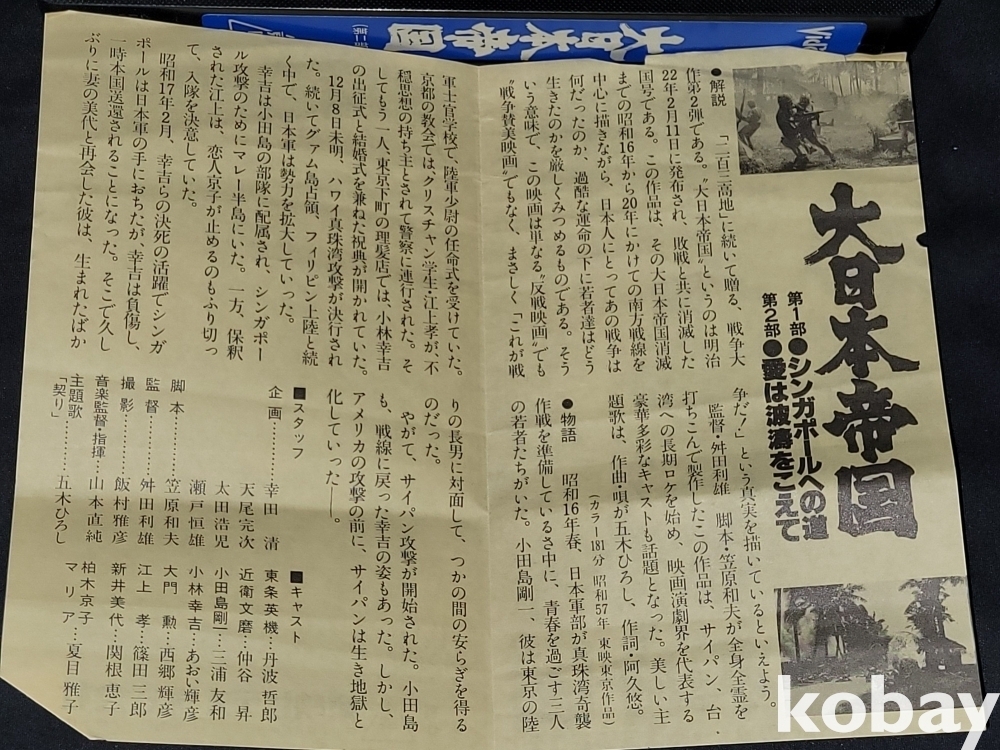 Vide
大日本帝国
大日本帝国
第1部●シンガポールへの道
第2部●愛は波濤をこえて
●解説　「二百三高地」に続いて贈る、戦争大
作第2弾である。〝大日本帝国〟というのは明治
22年2月11日に発布され、敗戦と共に消滅した
国号である。この作品は、その大日本帝国消滅
までの昭和16年から20年にかけての南方戦線を
中心に描きながら、日本人にとってあの戦争は
何だったのか、過酷な運命の下に若者達はどう
生きたのかを厳しくみつめるものである。そう
いう意味で、この映画は単なる〝反戦映画〟でも
〝戦争賛美映画〟でもなく、まさしく「これが戦
争だ！」という真実を描いているといえよう。
監督・舛田利雄　脚本・笠原和夫が全身全霊を
打ちこんで製作したこの作品は、サイパン、台
湾への長期ロケを始め、映画演劇界を代表する
豪華多彩なキャストも話題となった。美しい主
題歌は、作曲・唄が五木ひろし、作詞・阿久悠。
（カラー181分　昭和57年　東映東京作品）
●物語　昭和16年春、日本軍部が真珠湾奇襲
作戦を準備しているさ中に、青春を過ごす三人
の若者たちがいた。小田島剛一、彼は東京の陸
軍士官学校で、陸軍少尉の任命式を受けていた。
京都の教会ではクリスチャン学生・江上孝が、不
穏思想の持ち主とされて警察に連行された。そ
してもう一人、東京下町の理髪店では、小林幸吉
の出征式と結婚式を兼ねた祝典が開かれていた。
12月8日未明、ハワイ真珠湾攻撃が決行され
た。続いてグァム島占領、フィリピン上陸と続
く中で、日本軍は勢力を拡大していった。
幸吉は小田島の部隊に配属され、シンガポー
ル攻撃のためにマレー半島にいた。一方、保釈
された江上は、恋人京子が止めるのもふり切っ
て、入隊を決意していた。
昭和17年2月、幸吉らの決死の活躍でシンガ
ポールは日本軍の手におちたが、幸吉は負傷し、
一時本国送還されることになった。そこで久し
ぶりに妻の美代と再会した彼は、生まれたばか
りの長男に対面して、つかの間の安らぎを得る
のだった。
やがて、サイパン攻撃が開始された。小田島
も、戦線に戻った幸吉の姿もあった。しかし、
アメリカの攻撃の前に、サイパンは生き地獄と
化していった——。
■スタッフ
企画………幸田　清
天尾完次
太田浩児
瀬戸恒雄
脚本………笠原和夫
監督………舛田利雄
撮影………飯村雅彦
音楽監督・指揮…山本直純
主題歌
「契り」………五木ひろし
■キャスト
東条英機…丹波哲郎
近衛文磨…仲谷　昇
小田島剛一…三浦友和
小林幸吉…あおい輝彦
大門　勲…西郷輝彦
江上　孝…篠田三郎
新井美代…関根恵子
柏木京子
マリア…夏目雅子
kobay